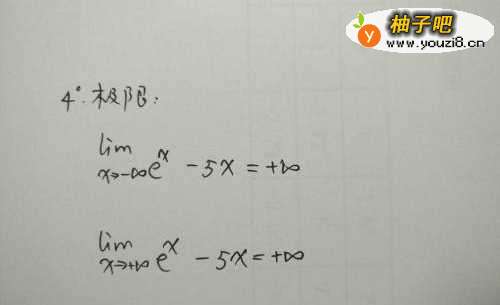 柚子吧
www.youzi8.cn
4°.极限:
lim x→-∞ eˣ - 5x = +∞
lim x→+∞ eˣ - 5x = +∞